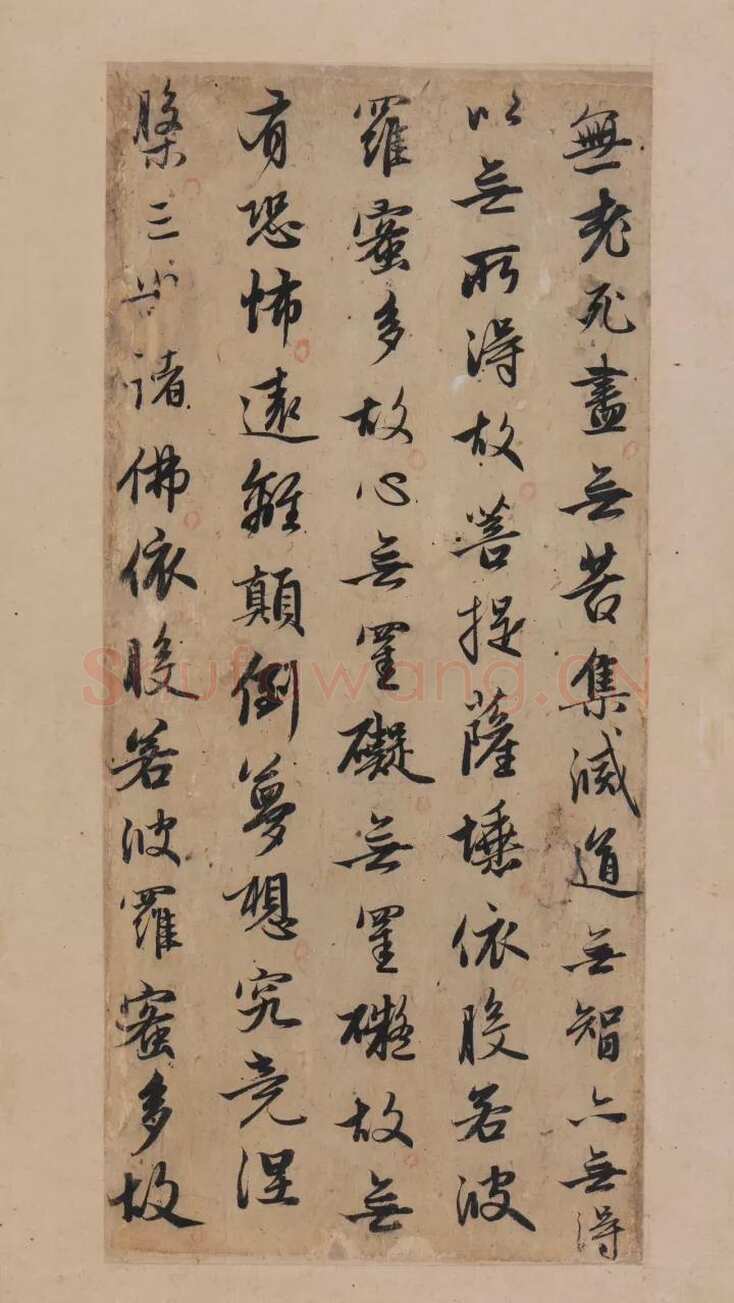 無老死盡無苦集滅道無智亦無得
以無所得故菩提薩埵依般若波
羅蜜多故心無罣礙無罣礙故無
有恐怖遠離顛倒夢想究竟涅
槃三世諸佛依般若波羅蜜多故
Shufawang.CN